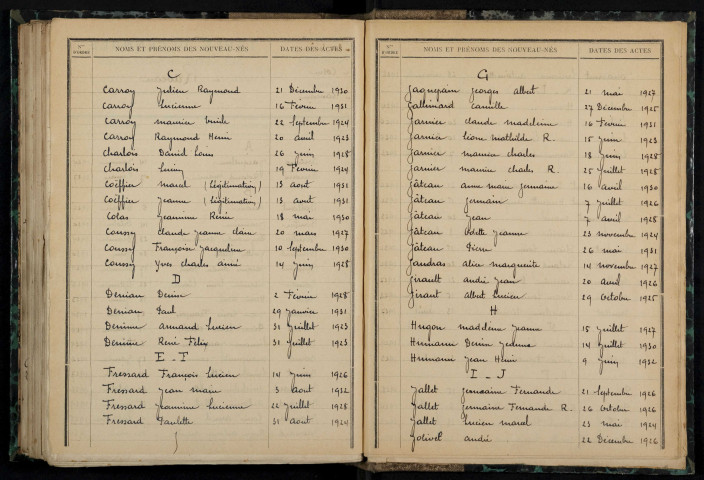 Nos D'ORDRE NOMS ET PRÉNOMS DES NOUVEAU-NÉS DATES DES ACTES
C
Carroy Julien Raymond 21 Décembre 1930
Carroy Lucienne 16 Février 1931
Carroy maurice 22 Septembre 1924
Carroy Raymond Henri 20 avril 1923
Charlois Daniel Louis 26 juin 1928
Charlois Lucien 19 Février 1924
Coëffier marcel (Légitimation) 13 aout 1931
Coëffier Jeanne (Légitimation) 13 aout 1931
Colas Jeannine Renée 18 mai 1930
Coussy Claude Jeanne 20 mars 1927
Coussy Françoise Jacqueline 10 Septembre 1930
Coussy Yves Charles aimé 14 juin 1928
D
Denian Denise 2 Février 1928
Denian Paul 29 Janvier 1931
armand Lucien 31 juillet 1923
René Felix 31 juillet 1923
E - F
Fressard François Lucien 14 juin 1926
Fressard Jean 3 aout 1932
Fressard Jeannine Lucienne 22 juillet 1928
Fressard Paulette 31 aout 1924
Nos D'ORDRE NOMS ET PRÉNOMS DES NOUVEAU-NÉS DATES DES ACTES
G
Georges albert 21 mai 1927
Gallimard Camille 27 Décembre 1925
Garnier Claude madeleine 16 Février 1931
Garnier mathilde R. 15 juin 1923
Garnier maurice Charles 18 juin 1928
Garnier maurice Charles R. 25 juillet 1928
Gâteau anne marie Germaine 16 avril 1930
Gâteau Germain 7 juillet 1926
Gâteau Jean 7 avril 1928
Gâteau Odette Jeanne 23 novembre 1924
Gâteau Pierre 26 mai 1931
Gaudras alice marguerite 14 novembre 1927
Girault andré Jean 20 avril 1926
Girault albert Lucien 29 Octobre 1925
H
Hugon madeleine Jeanne 15 juillet 1927
Hurmann Denise Jeanne 14 juillet 1930
Hurmann Jean Henri 9 juin 1932
I - J
Jallet Germaine Fernande 21 Septembre 1926
Jallet Germaine Fernande R. 26 Octobre 1926
Jallet Lucien marcel 23 mai 1924
Jolivel andré 22 Décembre 1926